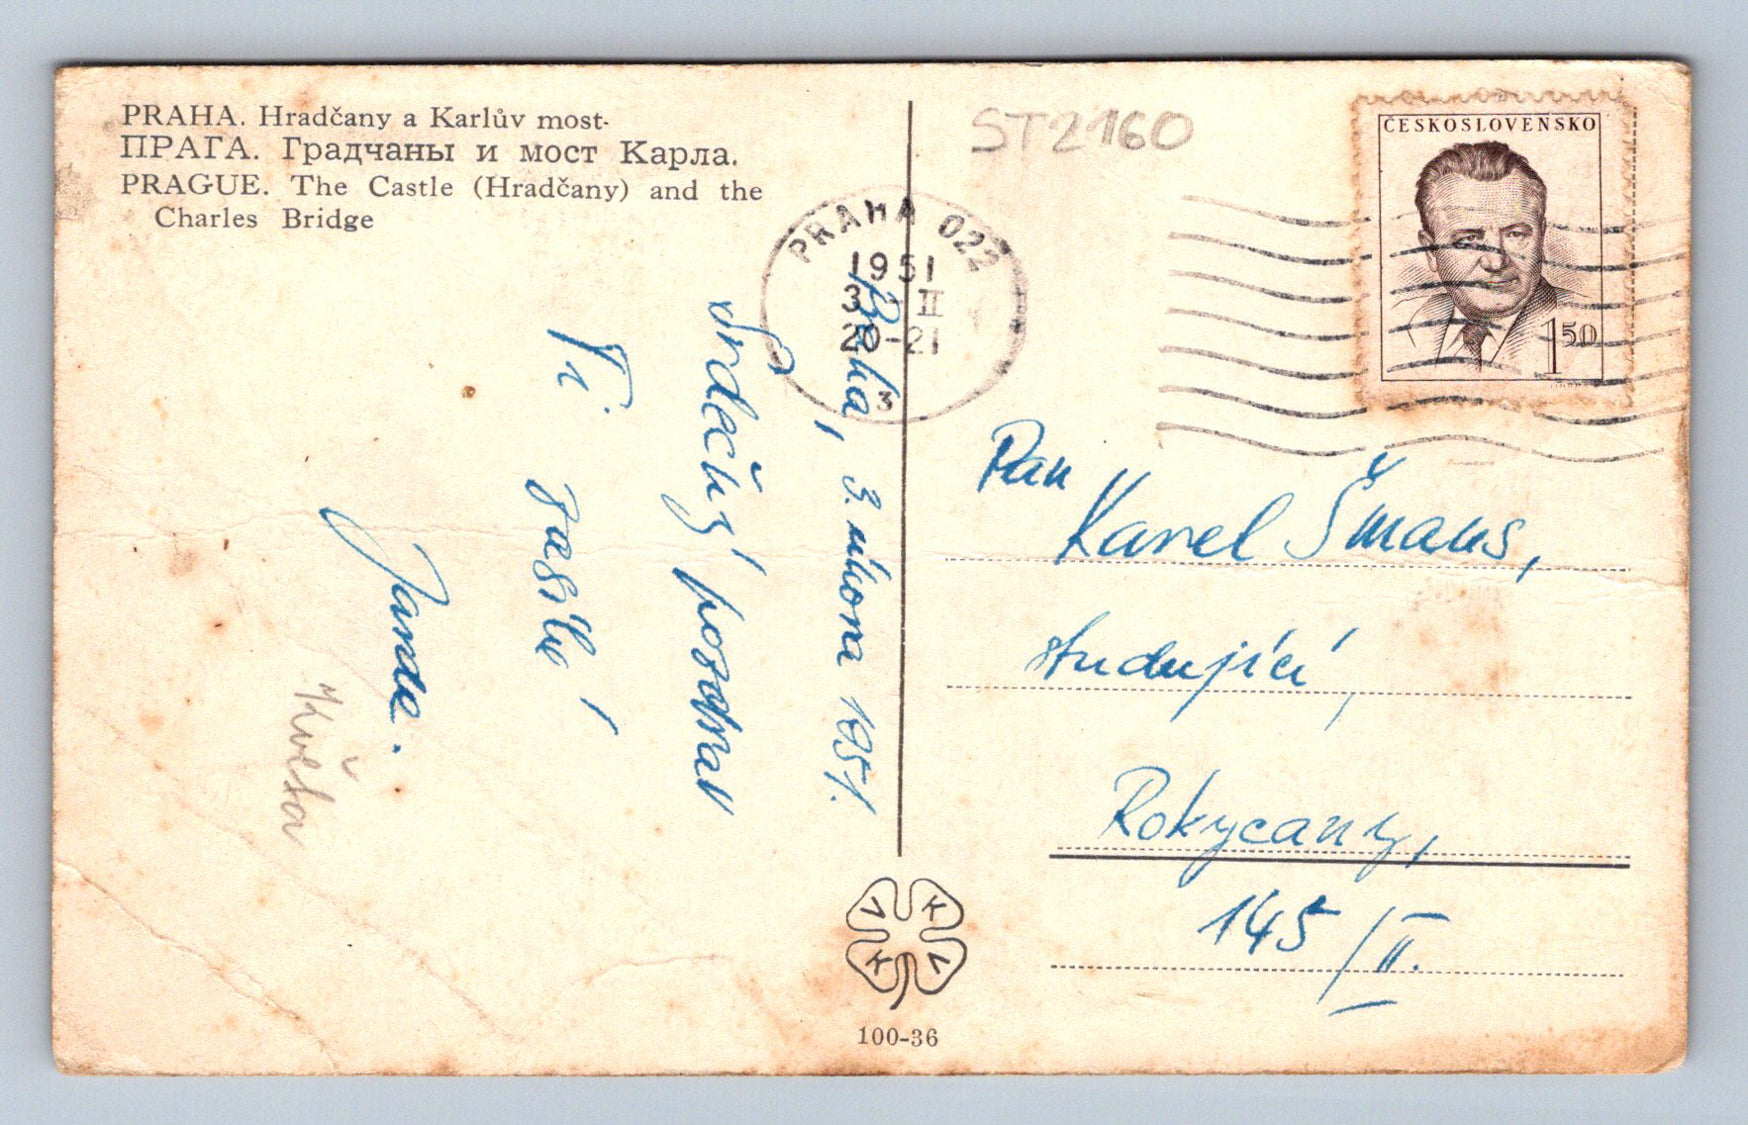 PRAHA. Hradčany a Karlův most.
ПРАГА. Градчаны и мост Карла.
PRAGUE. The Castle (Hradčany) and the
Charles Bridge
ST2160
ČESKOSLOVENSKO
150
PRAHA 022
1951
3 II
20-21
3
Praha, 3. února 1951.
Srdečný pozdrav
Ti zasílá
Jarda.
Květa
Pan
Karel Šmaus,
studující,
Rokycany,
145/II.
V K
K V
100-36